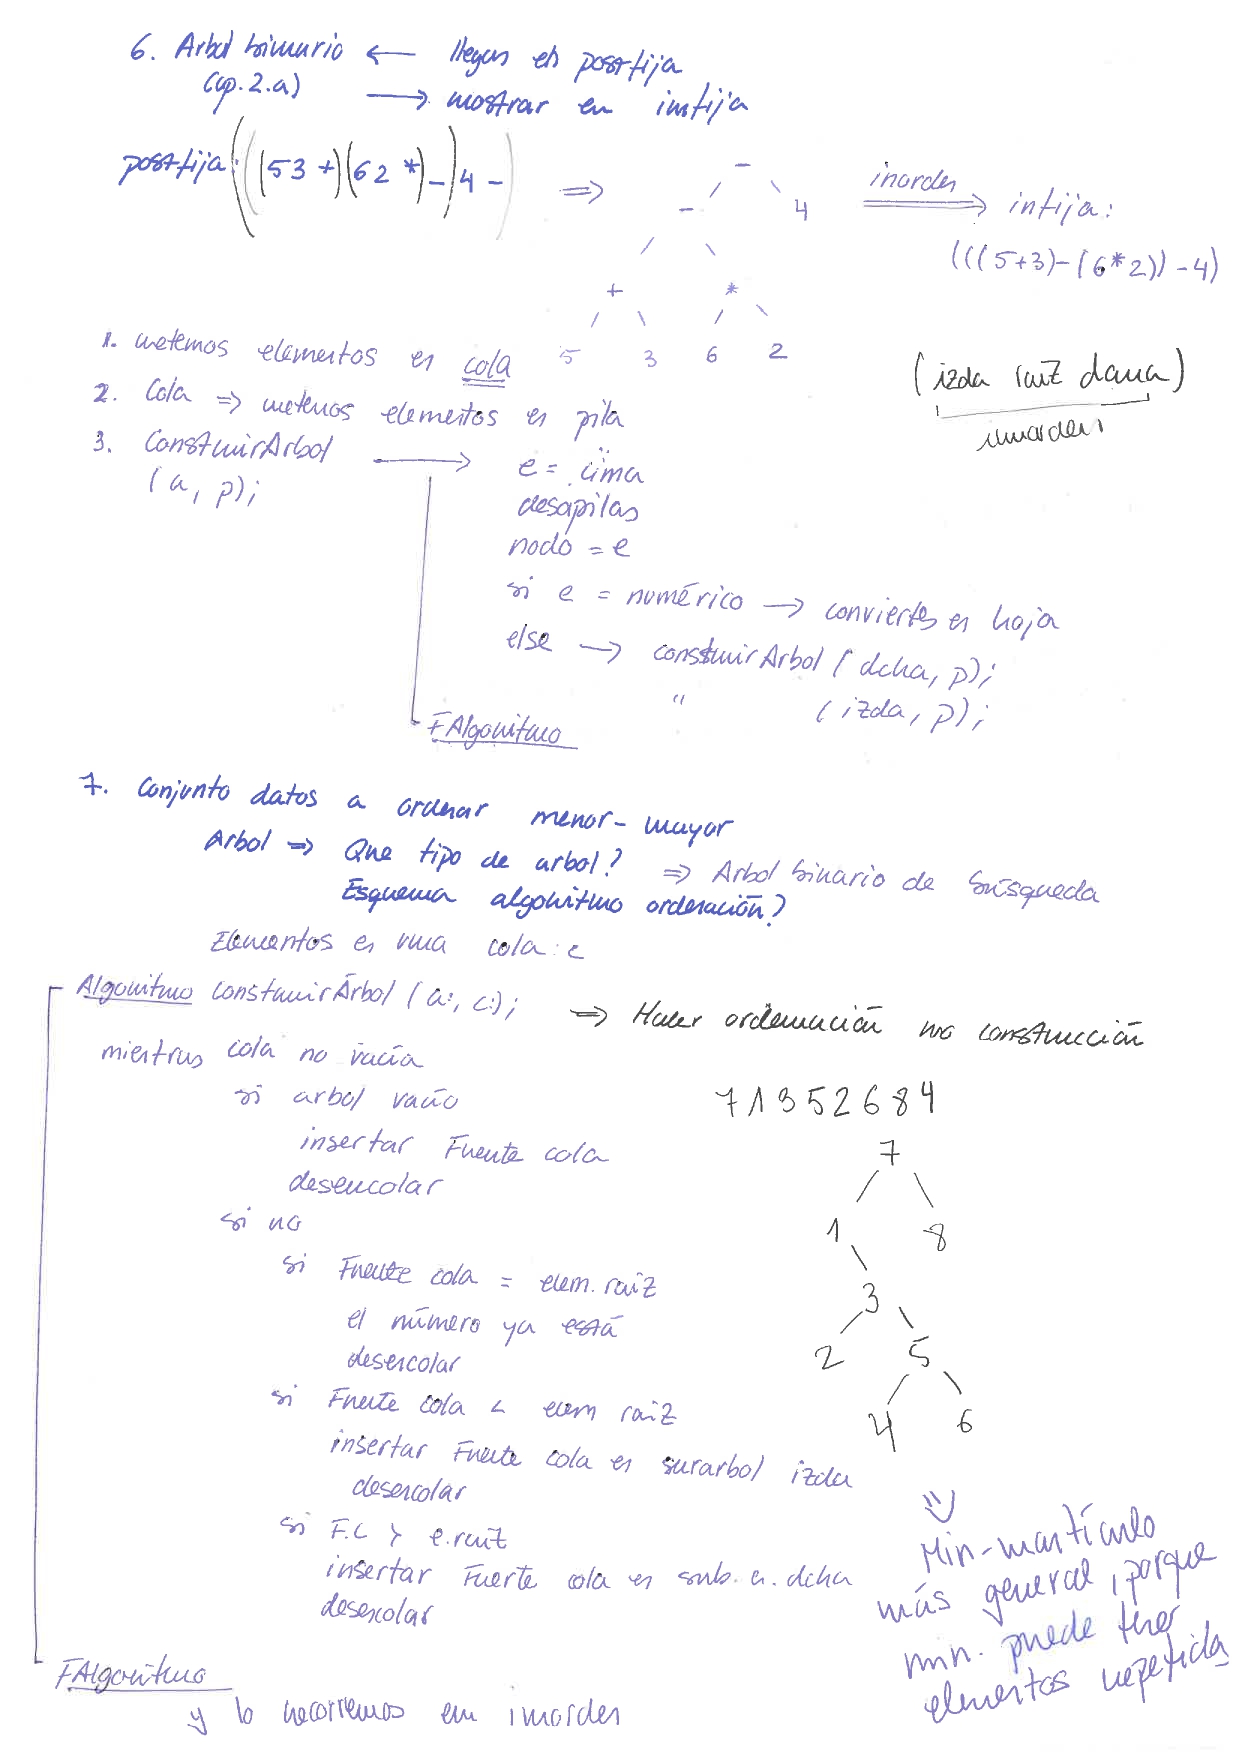 6. Arbol binario ← llegan en postfija
(op. 2.a) → mostrar en intija
postfija: (((53+)(62*)-)4-) ⇒
-
- 4
+ *
5 3 6 2
inorden ⇒ intija:
(((5+3)-(6*2))-4)
(izda raíz dcha)
inorden
1. metemos elementos en cola
2. Cola ⇒ metemos elementos en pila
3. ConstruirArbol → e = cima
(a, p);
desapilas
nodo = e
si e = numérico → conviertes en hoja
else → construirArbol (dcha, p);
" (izda, p);
FAlgoritmo
7. Conjunto datos a ordenar menor-mayor
Arbol ⇒ Que tipo de arbol? ⇒ Arbol binario de búsqueda
Esquema algoritmo ordenación?
Elementos en una cola: c
Algoritmo construirÁrbol (a:, c:); ⇒ Hacer ordenación no construcción
mientras cola no vacía
si arbol vacío
insertar Frente cola
desencolar
si no
si Frente cola = elem. raiz
el número ya está
desencolar
si Frente cola < elem raiz
insertar Frente cola en surarbol izda
desencolar
si F.C > e.raiz
insertar Frente cola en sub. a. dcha
desencolar
FAlgoritmo
y lo recorremos en inorden
7 1 3 5 2 6 8 4
7
1 8
3
2 5
4 6
Min-montículo
más general, porque
mn. puede tener
elementos repetidos